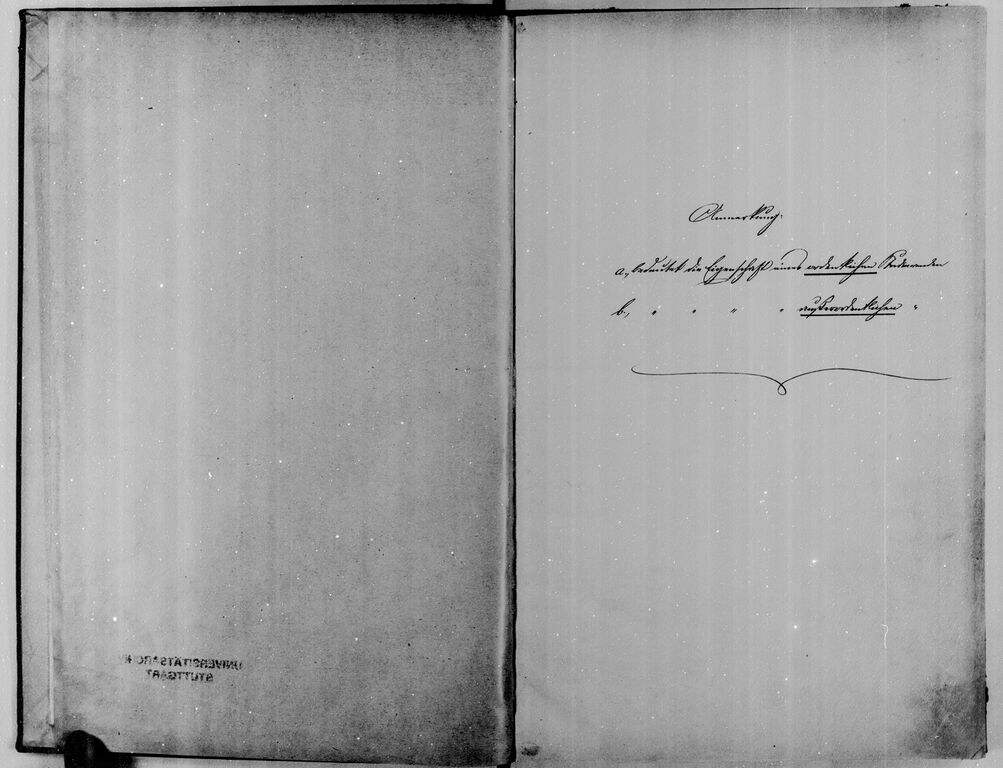 UNIVERSITÄTSARCHIV
STUTTGART
Anmerkung:
a., bedeutet die Eigenschaft eines ordentlichen Studierenden
b., " " " " außerordentlichen "